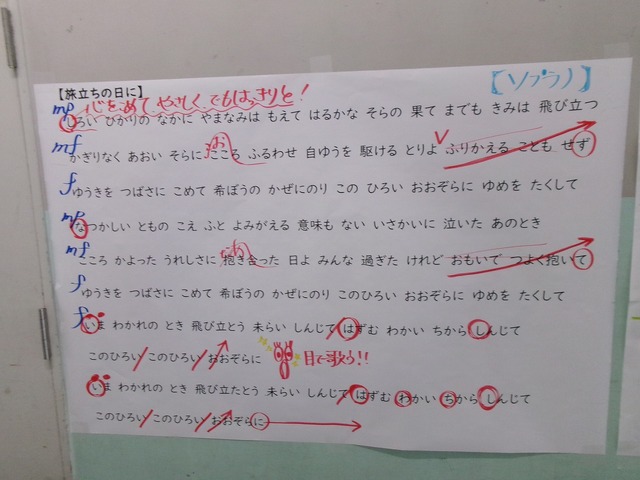 【旅立ちの日に】
心をこめて やさしく でもはっきりと!
【ソプラノ】
mp しろい ひかりの なかに やまなみは もえて はるかな そらの 果て までも きみは 飛び立つ
mf かぎりなく あおい そらに こころ ふるわせ 自ゆうを 駆ける とりよ V ふりかえる ことも せず
f ゆうきを つばさに こめて 希ぼうの かぜにのり この ひろい おおぞらに ゆめを たくして
mp なつかしい ともの こえ ふと よみがえる 意味も ない いさかいに 泣いた あのとき
mf こころ かよった うれしさに 抱き合った 日よ みんな 過ぎた けれど おもいで つよく抱いて
f ゆうきを つばさに こめて 希ぼうの かぜにのり このひろい おおぞらに ゆめを たくして
f いま わかれの とき 飛び立とう 未らい しんじて はずむ わかい ちから しんじて
このひろい このひろい おおぞらに 目で歌う!!
いま わかれの とき 飛び立たとう 未らい しんじて はずむ わかい ちから しんじて
このひろい このひろい おおぞらに